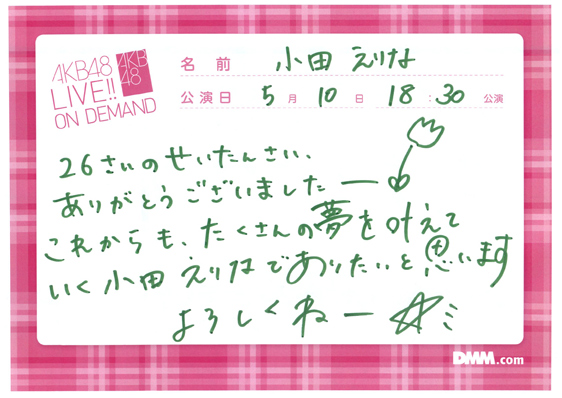 AKB48
LIVE!!
ON DEMAND
AKB
48
名前 小田 えりな
公演日 5月 10日 18:30公演
26さいのせいたんさい、
ありがとうございましたー
これからも、たくさんの夢を叶えて
いく小田えりなでありたいと思います
よろしくねー
DMM.com